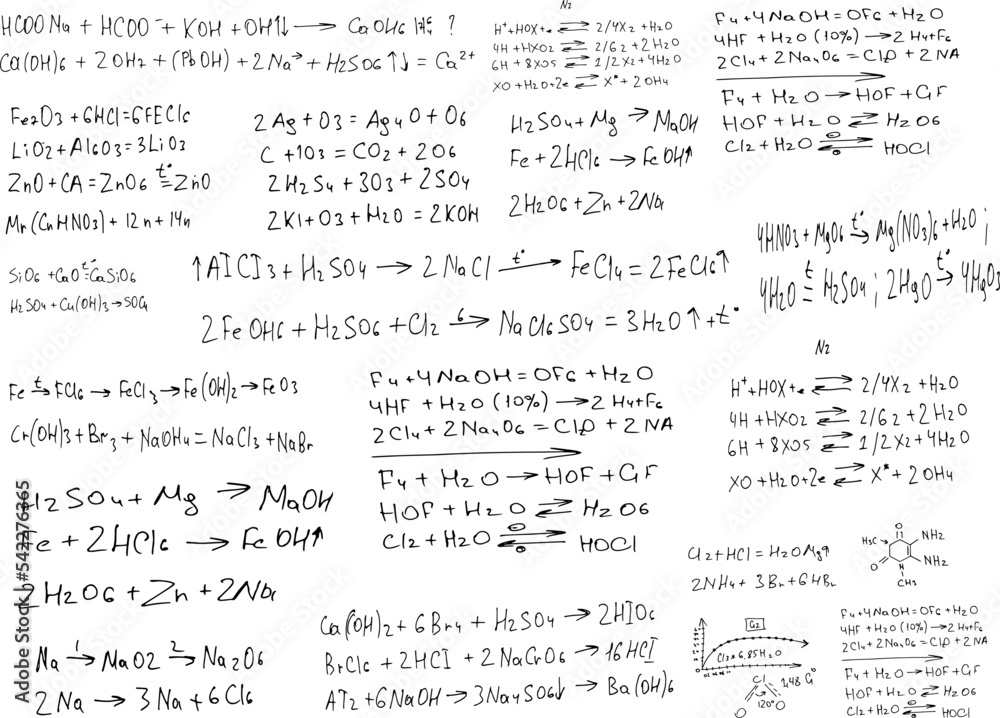 HCOONa + HCOO⁻ + KOH + OH↑↓ → CaOH6 ?
Ca(OH)6 + 2OH2 + (PbOH) + 2Na→ + H2SO6 ↑↓ = Ca²⁺
N2
H⁺+HOX+e ⇌ 2/4X2 + H2O
4H + HXO2 ⇌ 2/62 + 2H2O
6H + 8XO5 ⇌ 1/2X2 + 4H2O
XO + H2O+2e ⇌ X* + 2OH4
F4+4NaOH=OF6 + H2O
4HF + H2O (10%) → 2H4+F6
2Cl4 + 2Na4O6 = ClO + 2NA
F4 + H2O → HOF + GF
HOF + H2O ⇌ H2O6
Cl2 + H2O ⇌ HOCl
Fe2O3 + 6HCl=6FECl6
LiO2+Al6O3=3LiO3
ZnO + CA = ZnO6 t° = ZnO
Mr(CnHNO3) + 12n + 14n
2Ag + O3 = Ag4O + O6
C + 1O3 = CO2 + 2O6
2H2S4 + 3O3 + 2SO4
2K1+O3+H2O = 2KOH
H2SO4+Mg → MaOH
Fe + 2HCl6 → FeOH↑
2H2O6 + Zn + 2Na
4HNO3 + MgO6 t° → Mg(NO3)6 + H2O ;
4H2O t = H2SO4 ; 2HgO t° → 4HgO3
SiO6 + CaO t° = CaSiO6
H2SO4 + Cu(OH)3 → SOC4
↑AICI3 + H2SO4 → 2NaCl t° → FeCl4 = 2FeCl6↑
2FeOH6 + H2SO6 + Cl2 6 → NaCl6SO4 = 3H2O↑ + t°
Fe t → FCl6 → FeCl3 → Fe(OH)2 → FeO3
Cr(OH)3 + Br3 + NaOH4 = NaCl3 + NaBr
F4+4NaOH=OF6 + H2O
4HF + H2O (10%) → 2H4+F6
2Cl4 + 2Na4O6 = ClO + 2NA
F4 + H2O → HOF + GF
HOF + H2O ⇌ H2O6
Cl2 + H2O ⇌ HOCl
N2
H⁺+HOX+e ⇌ 2/4X2 + H2O
4H + HXO2 ⇌ 2/62 + 2H2O
6H + 8XO5 ⇌ 1/2X2 + 4H2O
XO + H2O+2e ⇌ X* + 2OH4
H2SO4+Mg → MaOH
Fe + 2HCl6 → FeOH↑
2H2O6 + Zn + 2Na
Cl2+HCl=H2OMg↑
2NH4 + 3Br + 6HBr
O
H3C
NH2
NH2
O
N
CH3
Na 1 → MaO2 2 → Na2O6
2Na → 3Na + 6Cl6
Ca(OH)2 + 6Br4 + H2SO4 → 2HIO6
BrCl6 + 2HCI + 2NaCrO6 → 16HCI
AT2 + 6NaOH → 3Na4SO6↓ → Ba(OH)6
G2
Cl3+6,85H2O
Cl
1,48 G
120°
O
O
F4+4NaOH=OF6 + H2O
4HF + H2O (10%) → 2H4+F6
2Cl4 + 2Na4O6 = ClO + 2NA
F4 + H2O → HOF + GF
HOF + H2O ⇌ H2O6
Cl2 + H2O ⇌ HOCl
Adobe Stock | 542276365